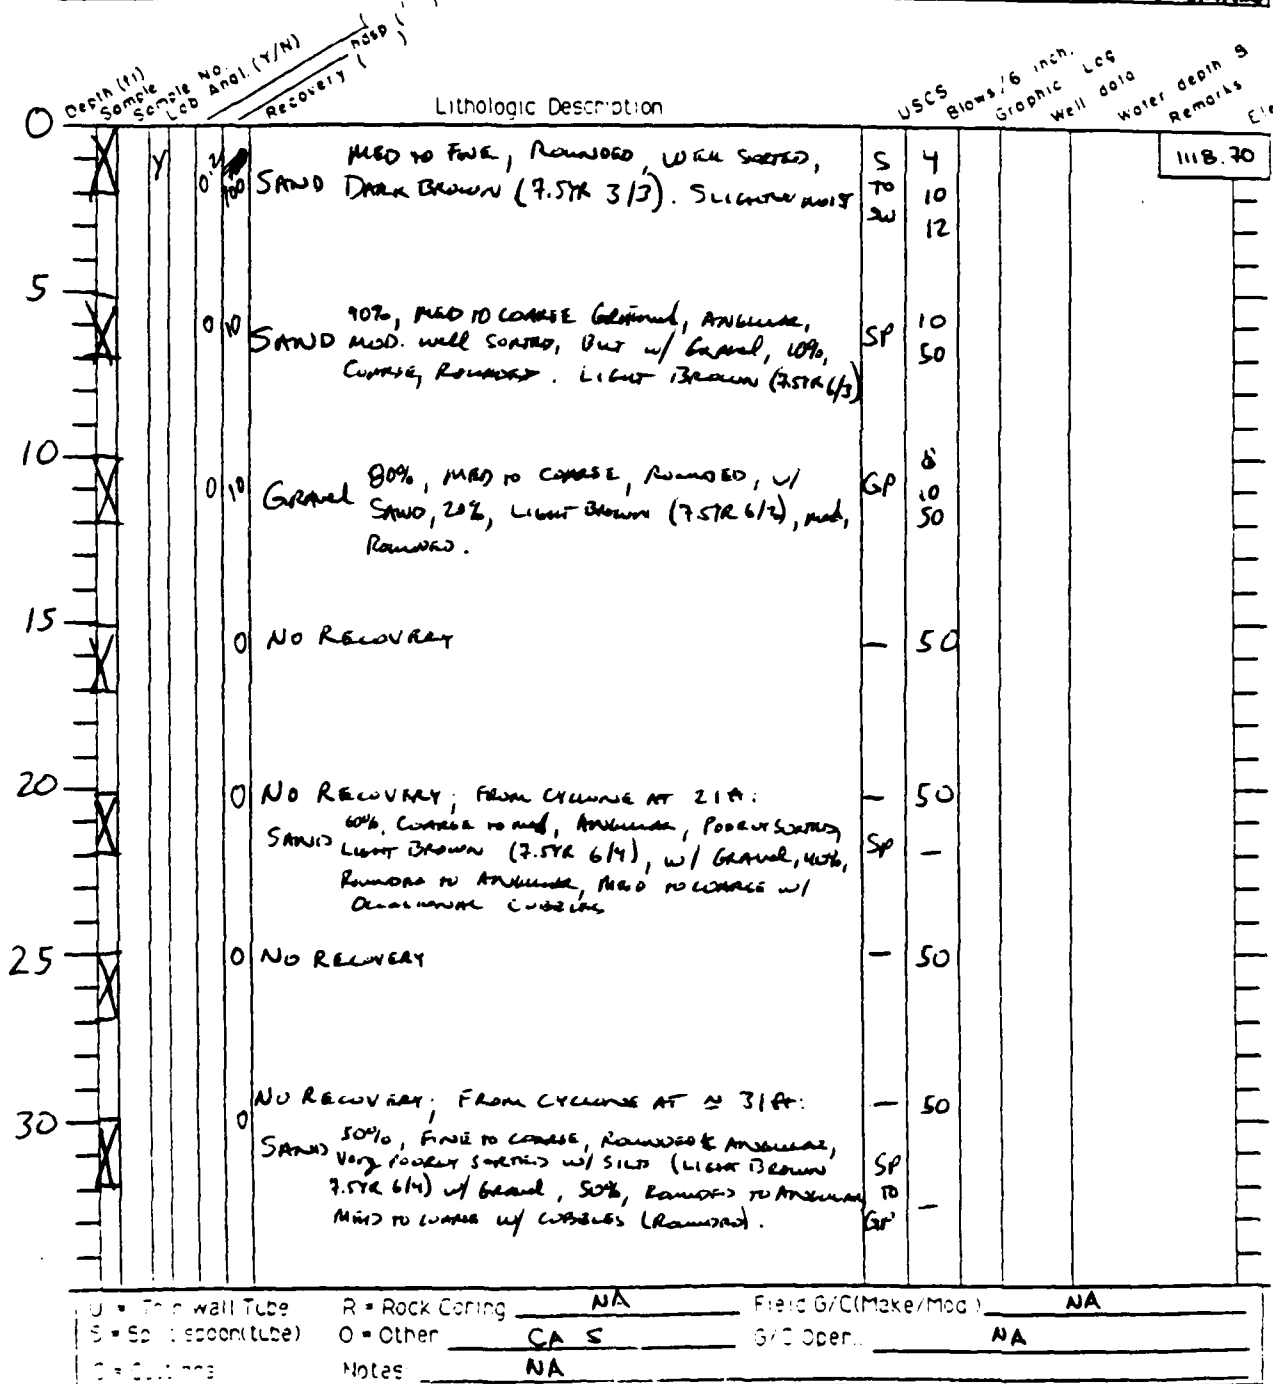 Depth (ft)
Sample
Sample No.
Lab Anal. (Y/N)
Recovery (
Lithologic Description
USCS
Blows/6 inch.
Graphic Log
Well data
Water depth &
Remarks
Ele
0
Y 0.2 100 SAND MED TO FINE, ROUNDED, WELL SORTED, S 4 1118.70
DARK BROWN (7.5YR 3/3). SLIGHTLY MOIST TO 10
SW 12
5
0 10 SAND 90%, MED TO COARSE GRAINED, ANGULAR, SP 10
MOD. WELL SORTED, BUT w/ GRAVEL, 10%, 50
COARSE, ROUNDED. LIGHT BROWN (7.5YR 6/3)
10
0 10 GRAVEL 80%, MED TO COARSE, ROUNDED, w/ GP 8
SAND, 20%, LIGHT BROWN (7.5YR 6/3), med, 10
ROUNDED. 50
15
0 NO RECOVERY — 50
20
0 NO RECOVERY; FROM CYCLONE AT 21 ft: — 50
SAND 60%, COARSE TO med, ANGULAR, POORLY SORTED, SP —
LIGHT BROWN (7.5YR 6/4), w/ GRAVEL, 40%,
ROUNDED TO ANGULAR, MED TO COARSE w/
OCCASIONAL COBBLES
25
0 NO RECOVERY — 50
NO RECOVERY; FROM CYCLONE AT ≈ 31 ft: — 50
30
0
SAND 50%, FINE TO COARSE, ROUNDED & ANGULAR,
Very POORLY SORTED w/ SILT (LIGHT BROWN SP
7.5YR 6/4) w/ GRAVEL, 50%, ROUNDED TO ANGULAR TO —
MED TO COARSE w/ COBBLES (ROUNDED). GP
U = Thin wall Tube R = Rock Coring NA Field G/C(Make/Mod.) NA
S = Split spoon(tube) O = Other CA S G/C Oper. NA
C = Cuttings Notes NA